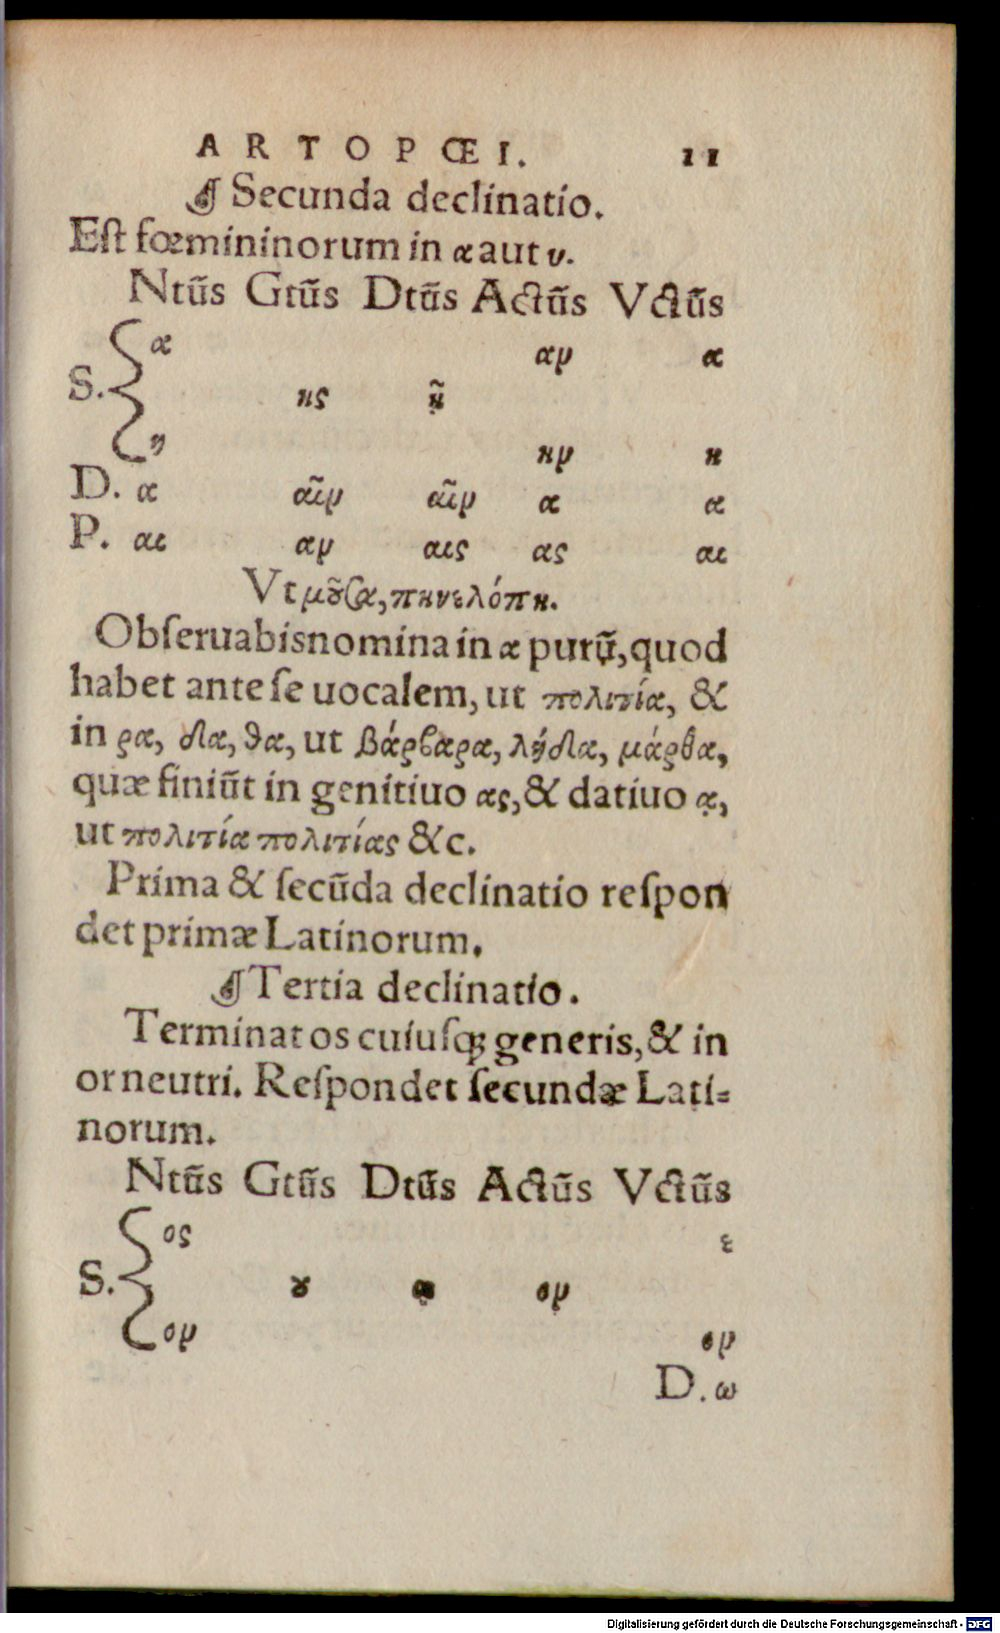 ARTOPŒI. 11
¶ Secunda declinatio.
Est fœmininorum in α aut υ.
Ntũs Gtũs Dtũs Actũs Vctũs
α αν α
S. ης ῇ
η ην η
D. α αῖν αῖν α α
P. αι αν αις ας αι
Vt μοῦσα, πηνελόπη.
Obſeruabis nomina in α purũ, quod
habet ante ſe uocalem, ut πολιτία, &
in ρα, δα, θα, ut βάρβαρα, λήδα, μάρθα,
quæ finiũt in genitiuo ας, & datiuo ᾳ,
ut πολιτία πολιτίας &c.
Prima & ſecũda declinatio reſpon
det primæ Latinorum.
¶ Tertia declinatio.
Terminat os cuiuſqꝫ generis, & in
or neutri. Reſpondet ſecundæ Lati⸗
norum.
Ntũs Gtũs Dtũs Actũs Vctũs
ος ε
S. ου ῳ ον
ον ον
D. ω
Digitalisierung gefördert durch die Deutsche Forschungsgemeinschaft - DFG